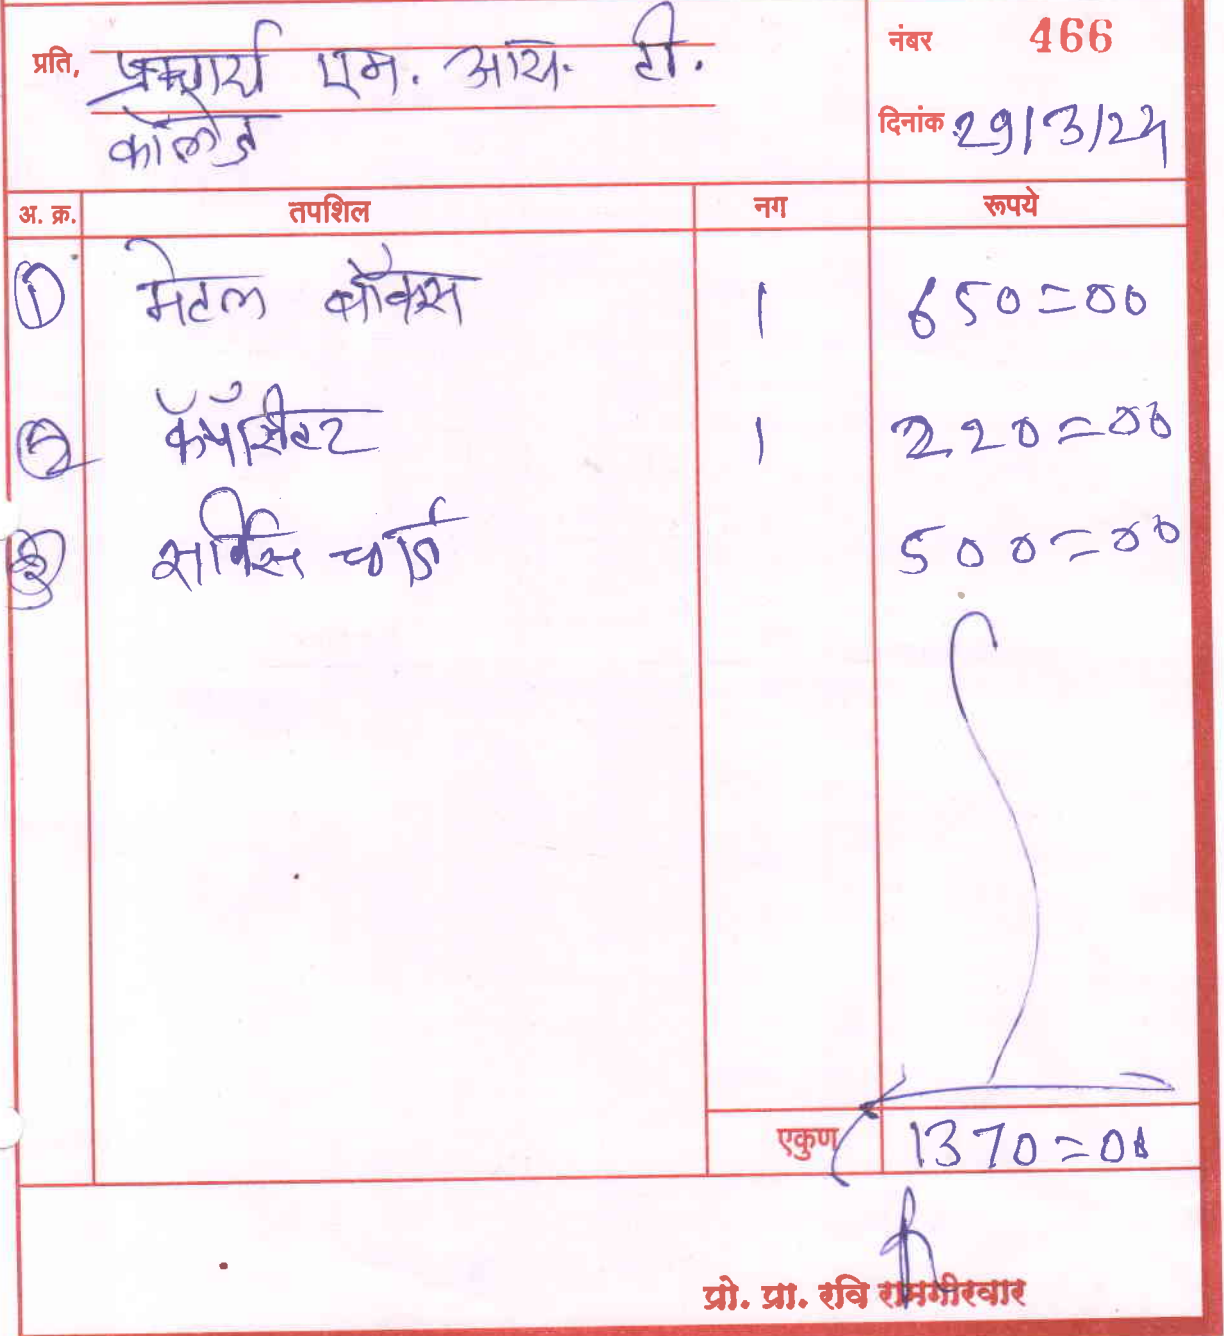 प्रति, प्राचार्य एम. आय. टी.
कॉलेज
नंबर 466
दिनांक 29/3/24
अ. क्र. तपशिल नग रूपये
1 मेटल बॉक्स 1 650=00
2 कॅपॅसीटर 1 220=00
3 सर्विस चार्ज 500=00
एकुण 1370=00
प्रो. प्रा. रवि रामगीरवार